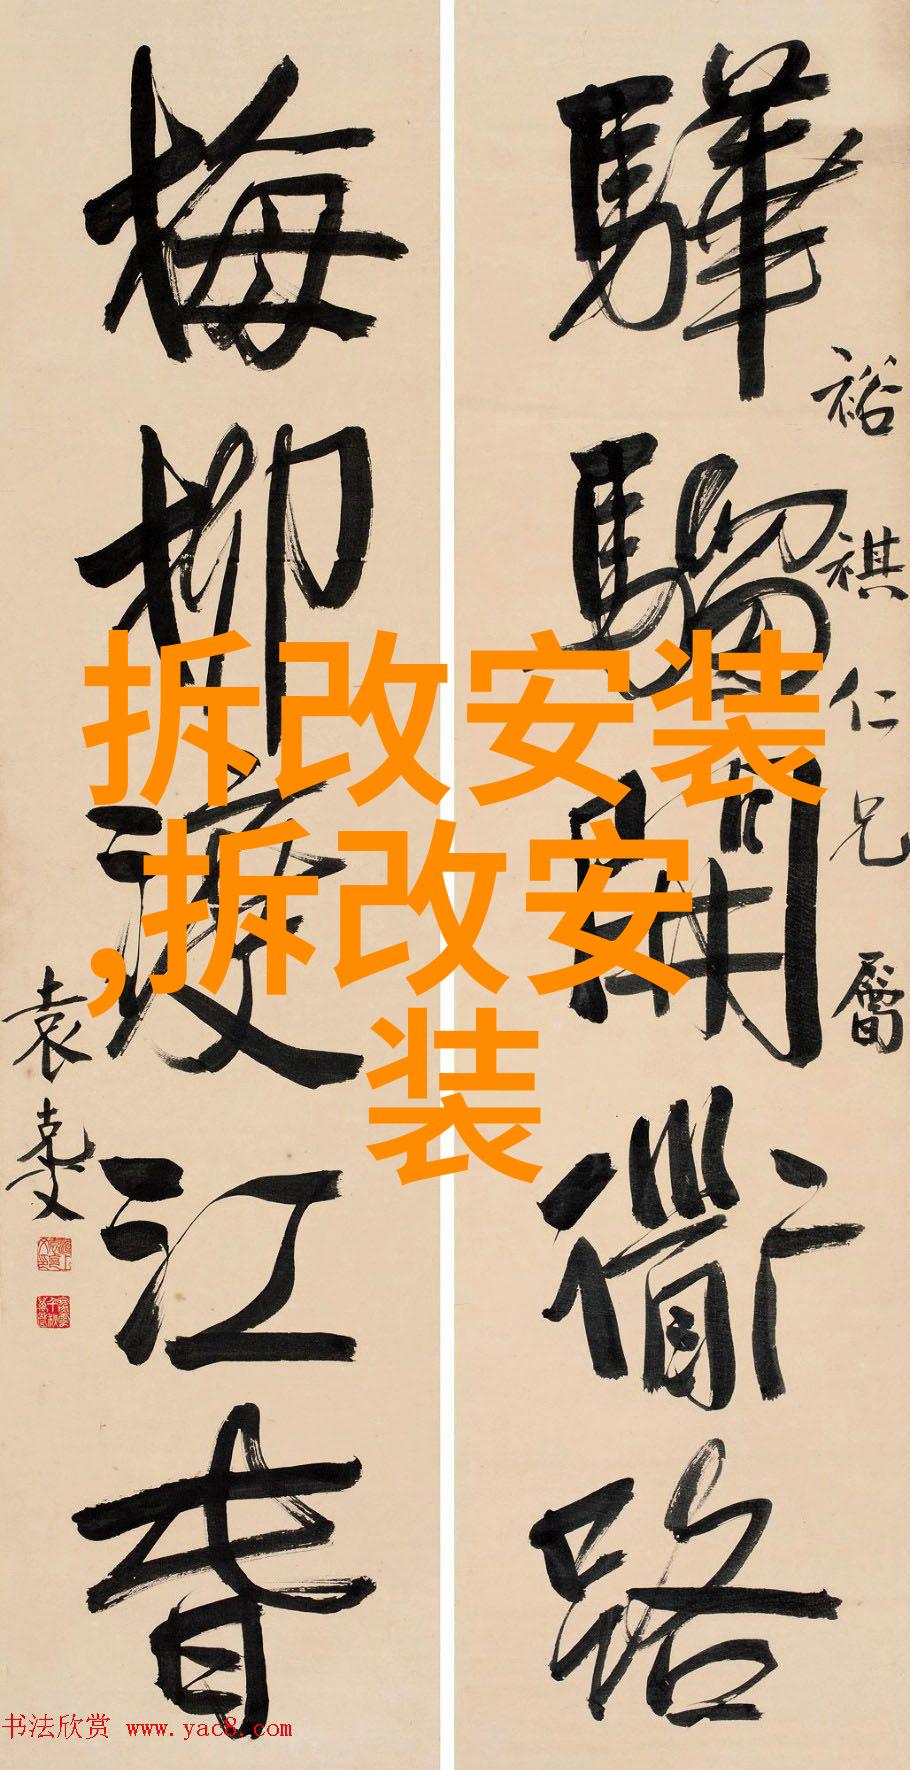 裕祺仁兄屬
驊騮開衜路
梅柳渡江春
袁克文
拆改安装
,拆改安
装
书法欣赏 www.yac8.com